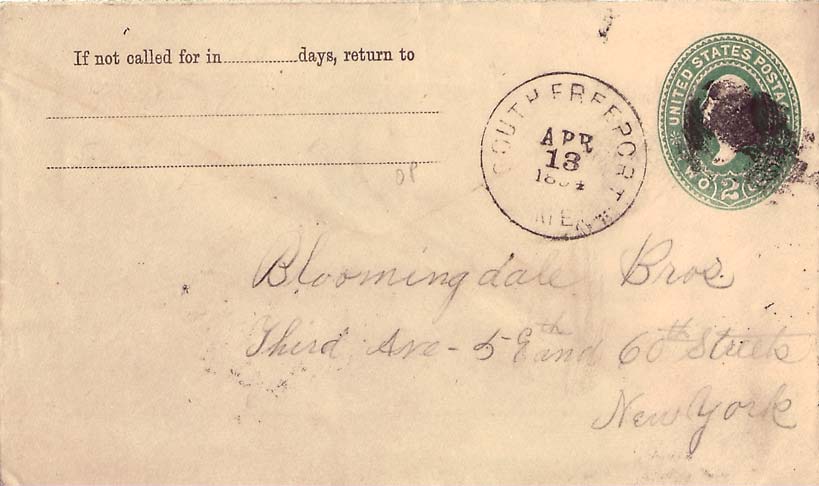 If not called for in..............days, return to
UNITED STATES POSTA
TWO 2
SOUTH FREEPORT
APR
13
1894
ME.
OP
Bloomingdale Bros.
Third Ave - 59th and 60th Streets
New York